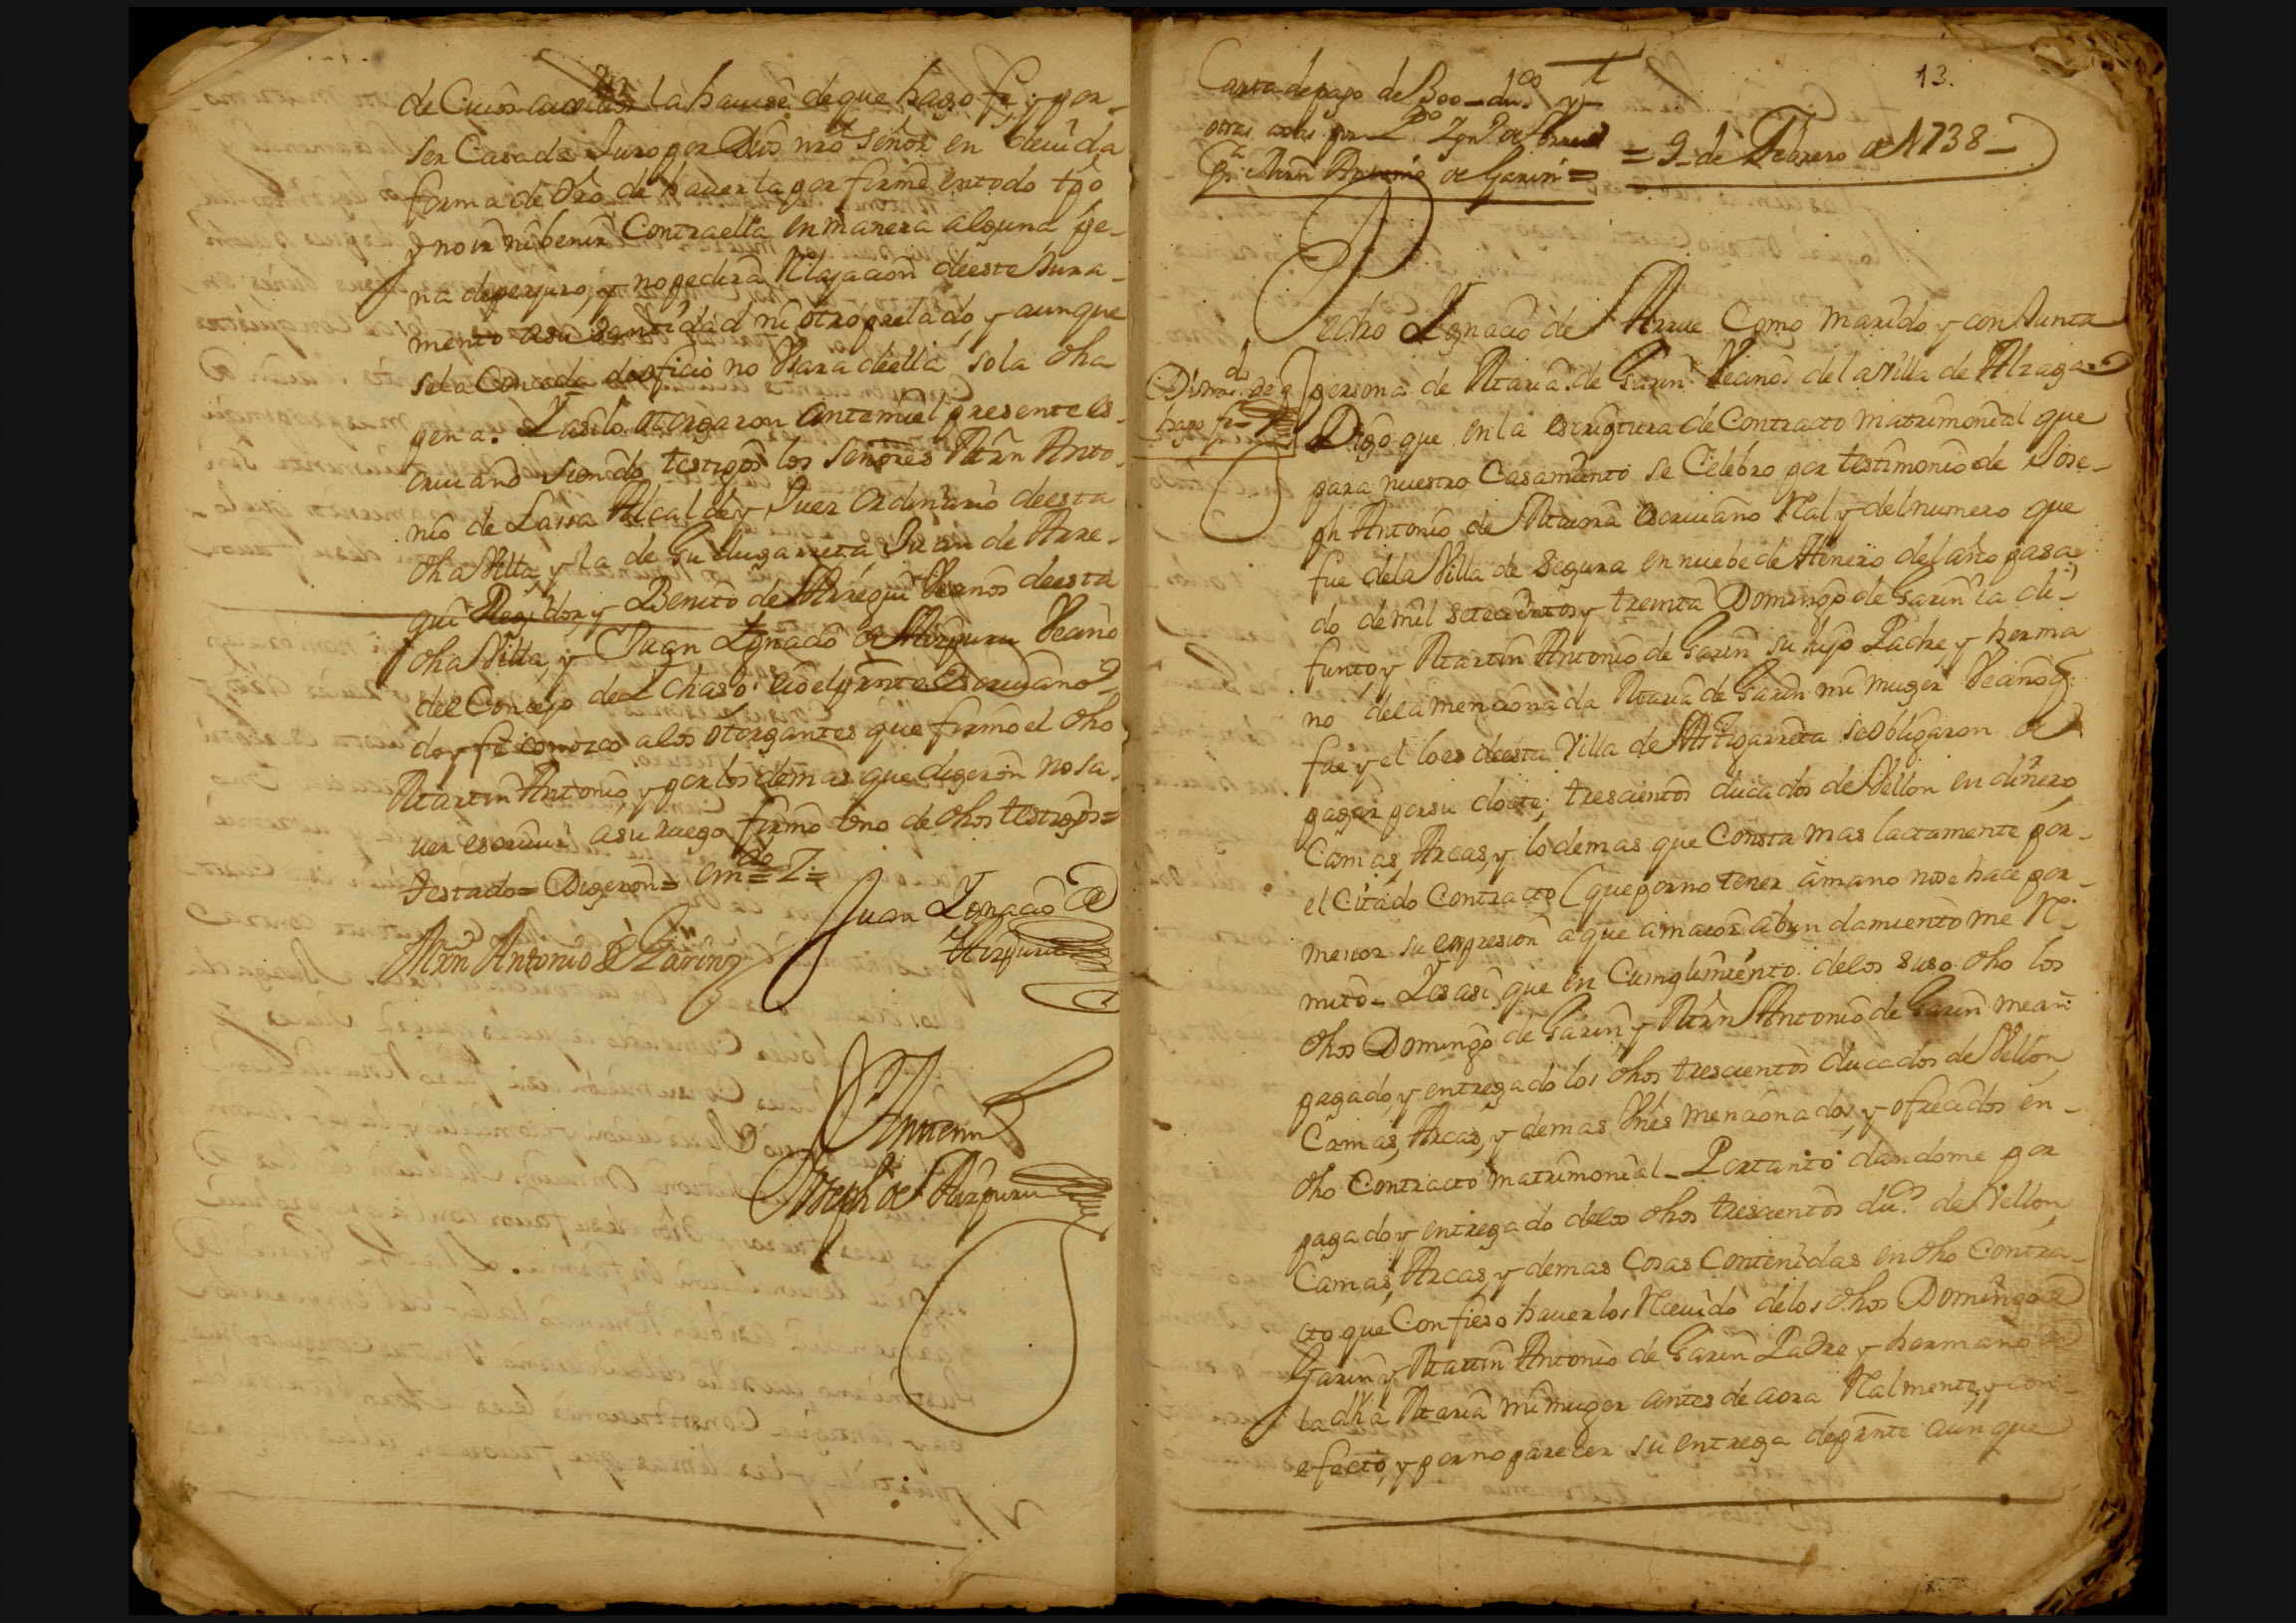 de Cuios auxilios la havise de que hago fe, y por
ser Casada Juro por Dios nrô Señor en devida
forma de dro de haverla por firme en todo tpô
y no ir ni benir Contra ella en manera alguna pe-
na de perjuro, y no pedira Relajacion de este Jura-
mento a su Santidad ni otro prelado, y aunque
se la Conceda de oficio no Usara de ella sola dha
pena. Y asi lo otorgaron ante mi el presente es-
crivano siendo testigos los Señores Mrn Anto-
nio de Lassa Alcalde y Juez ordinario de esta
dha Villa, y la de Gudugarreta Juan de Arre-
gui Regidor, y Benito de Arregui Vecinos de esta
dha Villa, y Juan Ignacio de Aizpuru Vecino
del Concejo de Ichaso. e io el prnte Escrivano
doy fe conozco a los otorgantes que firmo el dho
Martin Antonio, y por los demas que digeron no sa-
ver escrivir a su ruego firmo Uno de dhos testigos=
testado= Digeron= em.do= Z=
Mrn Antonio de Garin
Juan Ignacio de
Aizpuru
Ante mi
Joseph de Aizpuru
13.
Carta de pago de 300 = du.os y
otras cosas por P.o Ign.o de Arrue
Pa Mrn Antonio de Garin =
= 9 de Febrero de 1738 =
Pedro Ignacio de Arrue Como marido y conJunta
persona de Maria de Garin Vecinos de la Villa de Alzaga
Digo que en la escriptura de Contracto matrimonial que
para nuestro Casamiento se Celebro por testimonio de Jose-
ph Antonio de escrivano Ral y del numero que
fue de la Villa de Segura en nuebe de Henero del año pasa-
do de mil setecientos y treinta Domingo de Garin ia di-
funto y Martin Antonio de Garin su hijo Padre y herma
no de la mencionada Maria de Garin mi muger Vecinos q.
fue y el lo es de esta Villa de Astigarreta se obligaron de
pagar por su dote, trescientos ducados de Vellon en dinero
Camas, Arcas, y lo demas que Consta mas lactamente por
el Citado Contracto (que por no tener a mano no se hace por
menor su expresion a que a maior abundamiento me Re-
mito = Y es asi que en Cumplimiento de lo suso dho los
dhos Domingo de Garin y Mrn Antonio de Garin me an
pagado, y entregado los dhos trescientos ducados de Vellon,
Camas, Arcas, y demas vnes mencionados, y ofrecidos en
dho Contracto matrimonial = Portanto dandome por
pagado y entregado de los dhos trescientos du.s de Vellon,
Camas, Arcas, y demas Cosas Contenidas en dho Contra-
cto que Confieso haverlos Recivido de los dhos Domingo de
Garin y Martin Antonio de Garin Padre y hermano de
la dha Maria mi muger antes de aora Realmente, y con
efecto, y por no parecer su entrega de prnte aunque